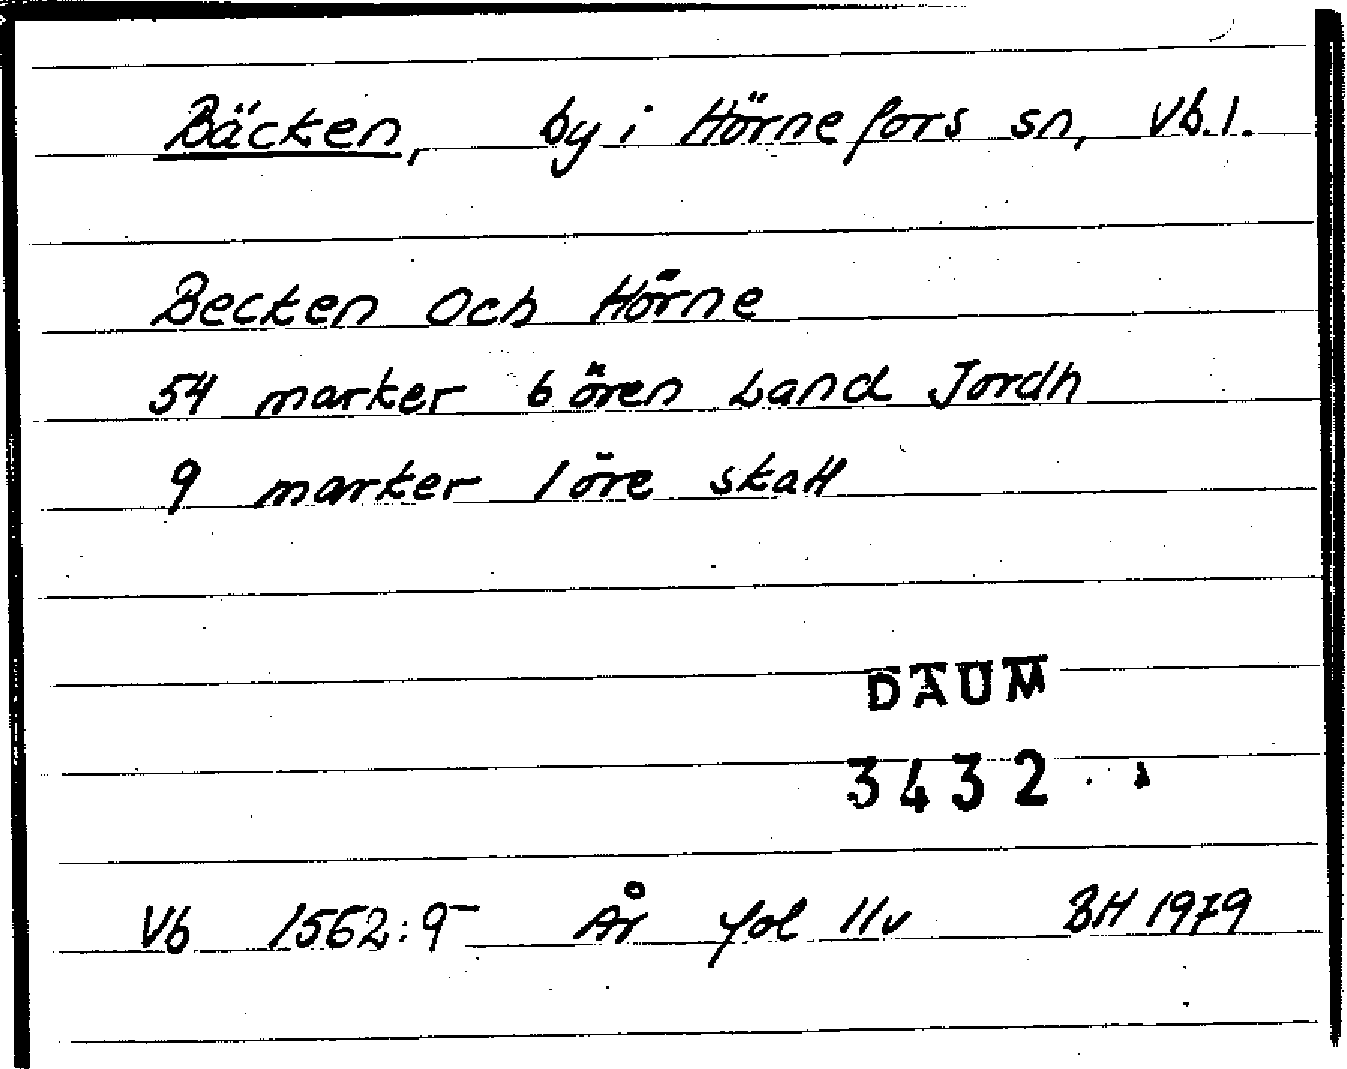 Bäcken, by i Hörnefors sn, Vb.l.
Becken Och Hörne
54 marker 6 ören Land Jordh
9 marker 1 öre skatt
DAUM
3432
Vb 1562:9 År fol 11v BH 1979